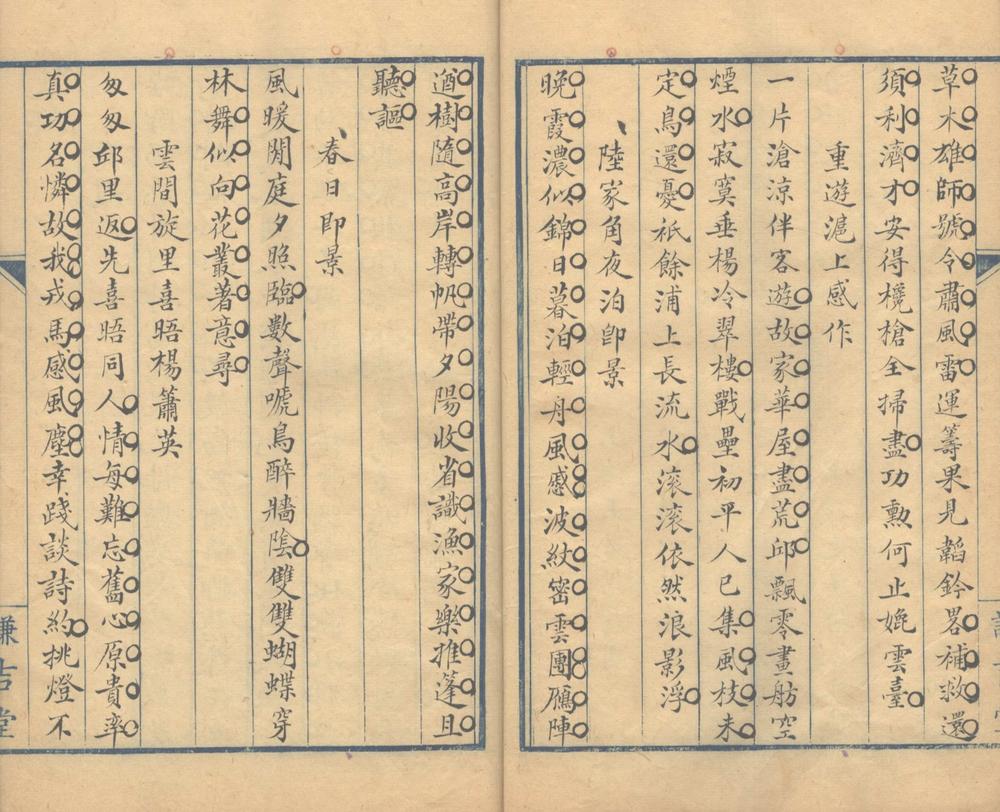 草木雄師號令肅風雷運籌果見韜鈐畧補救還
須利濟才安得欃槍全掃盡功勲何止嫓雲臺
重遊滬上感作
一片滄涼伴客遊故家華屋盡荒邱飄零畫舫空
煙水寂寞垂楊冷翠樓戰壘初平人已集風枝未
定鳥還憂祇餘浦上長流水滚滚依然浪影浮
陸家角夜泊卽景
晚霞濃似錦日暮泊輕舟風感波紋密雲團鴈陣
遒樹隨高岸轉帆帶夕陽收省識漁家樂推蓬且
聽謳
春日卽景
風暖閒庭夕照臨數聲嗁鳥醉牆陰雙雙蝴蝶穿
林舞似向花叢著意尋
雲間旋里喜晤楊簫英
匆匆邱里返先喜晤同人情每難忘舊心原貴率
真功名憐故我戎馬感風塵幸踐談詩約挑燈不
謙吉堂